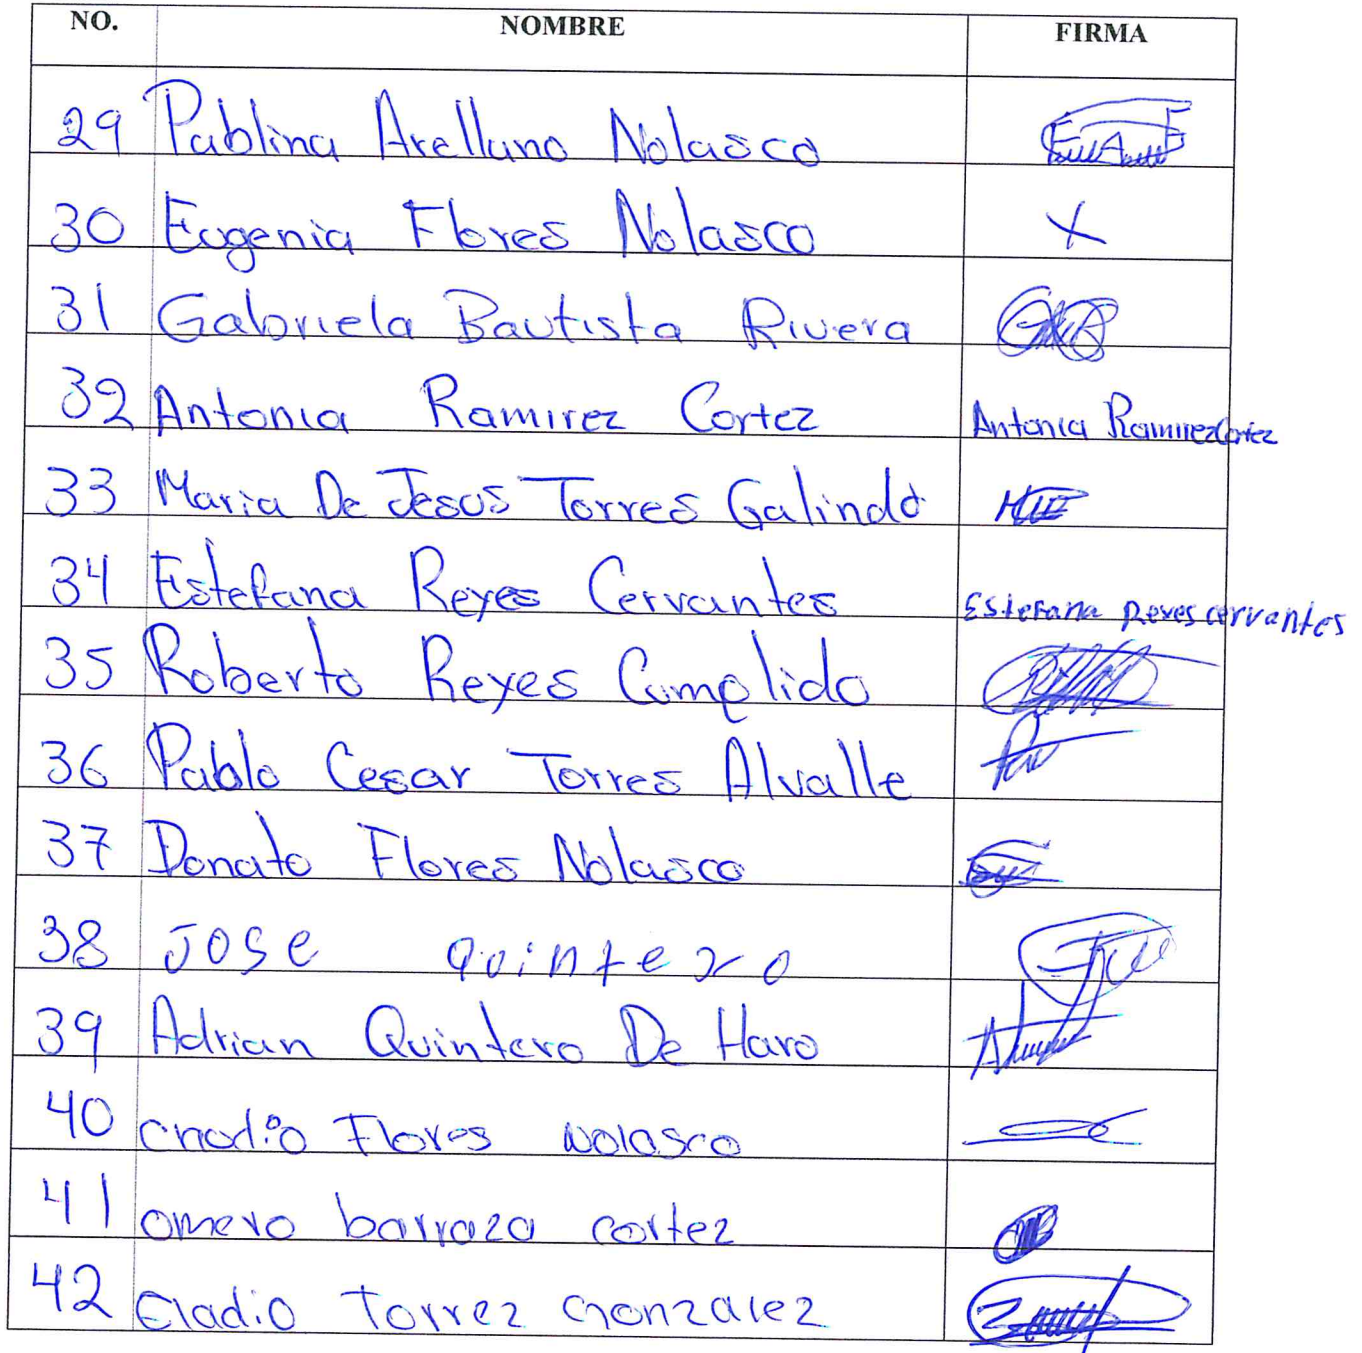 NO. NOMBRE FIRMA
29 Pablina Arellano Nolasco
30 Eugenia Flores Nolasco X
31 Gabriela Bautista Rivera
32 Antonia Ramirez Cortez Antonia Ramirez Cortez
33 Maria De Jesus Torres Galindo
34 Estefana Reyes Cervantes Estefana Reyes cervantes
35 Roberto Reyes Cumplido
36 Pablo Cesar Torres Alvalle
37 Donato Flores Nolasco
38 JOSE quintero
39 Adrian Quintero De Haro
40 Flores Nolasco
41 omero barraza cortez
42 Eladio Torrez Gonzalez